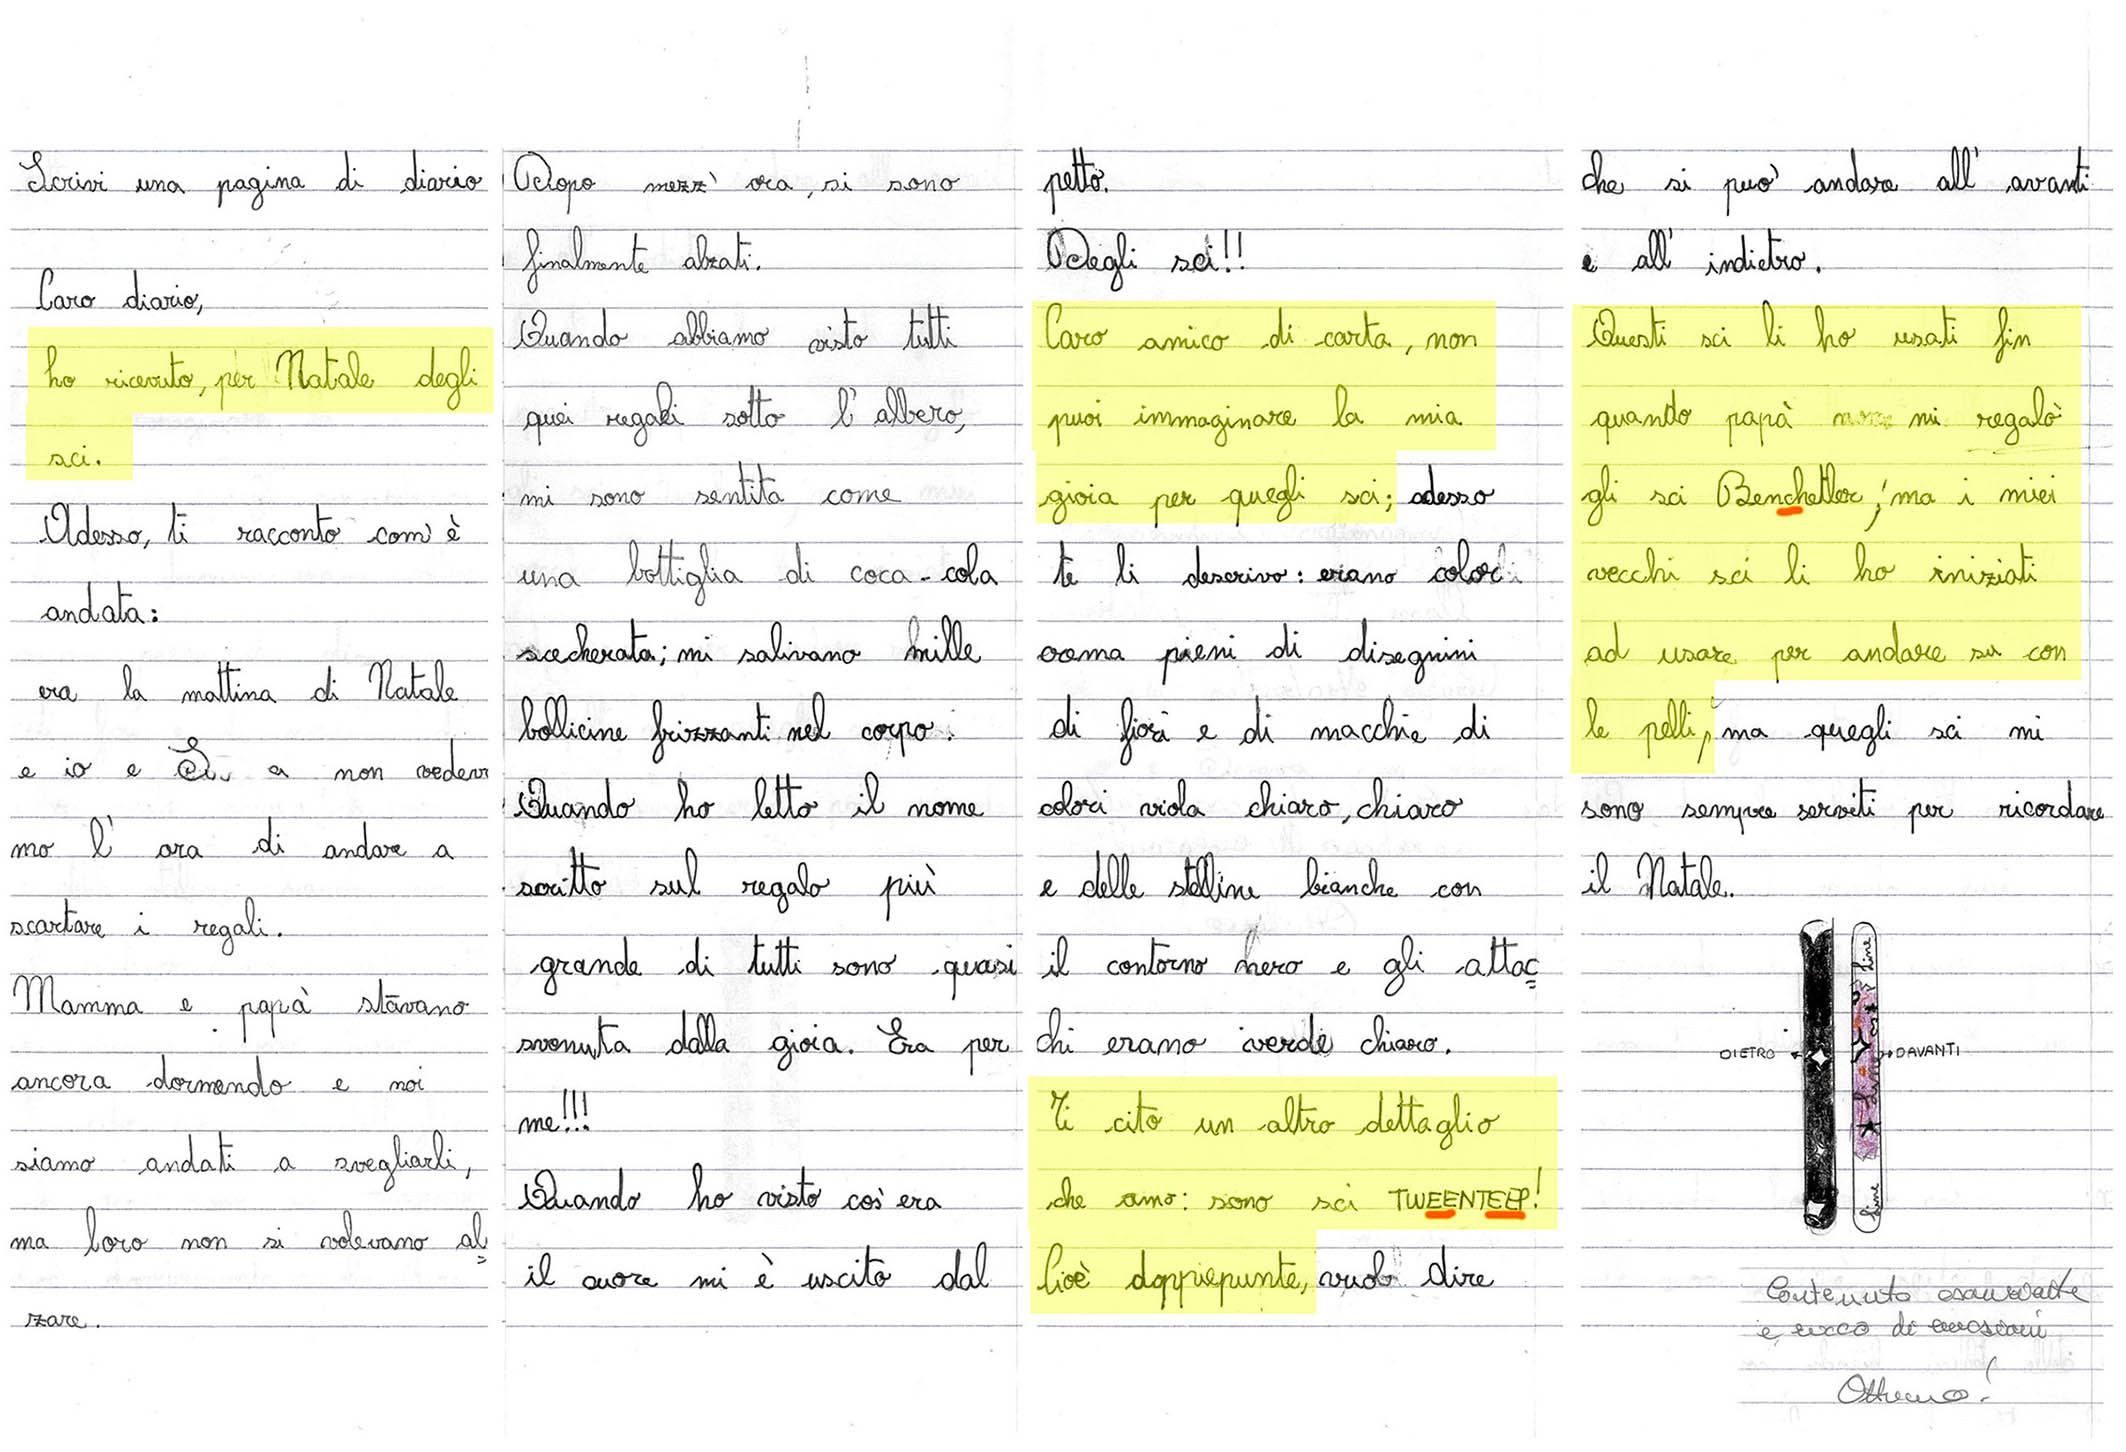 Scrivi una pagina di diario
Caro diario,
ho ricevuto, per Natale degli
sci.
Adesso, ti racconto com'è
andata:
era la mattina di Natale
e io e a non vedeva
mo l'ora di andare a
scartare i regali.
Mamma e papà stavano
ancora dormendo e noi
siamo andati a svegliarli,
ma loro non si volevano al
zare.
Dopo mezz'ora, si sono
finalmente alzati.
Quando abbiamo visto tutti
quei regali sotto l'albero,
mi sono sentita come
una bottiglia di coca-cola
scecherata; mi salivano mille
bollicine frizzanti nel corpo.
Quando ho letto il nome
scritto sul regalo più
grande di tutti sono quasi
svenuta dalla gioia. Era per
me!!!
Quando ho visto cos'era
il cuore mi è uscito dal
petto.
Degli sci!!
Caro amico di carta, non
puoi immaginare la mia
gioia per quegli sci; adesso
te li descrivo: erano color
crema pieni di disegnini
di fiori e di macchie di
colori viola chiaro, chiaro
e delle stelline bianche con
il contorno nero e gli attac
chi erano verde chiaro.
Ti cito un altro dettaglio
che amo: sono sci TWEENTEEP!
Cioè doppiepunte, vuol dire
che si può andare all'avanti
e all'indietro.
Questi sci li ho usati fin
quando papà mi regalò
gli sci Benchetler, ma i miei
vecchi sci li ho iniziati
ad usare per andare su con
le pelli, ma quegli sci mi
sono sempre serviti per ricordare
il Natale.
DIETRO DAVANTI
line
line
line
Contenuto esauriente
e ricco di emozioni
Ottimo!